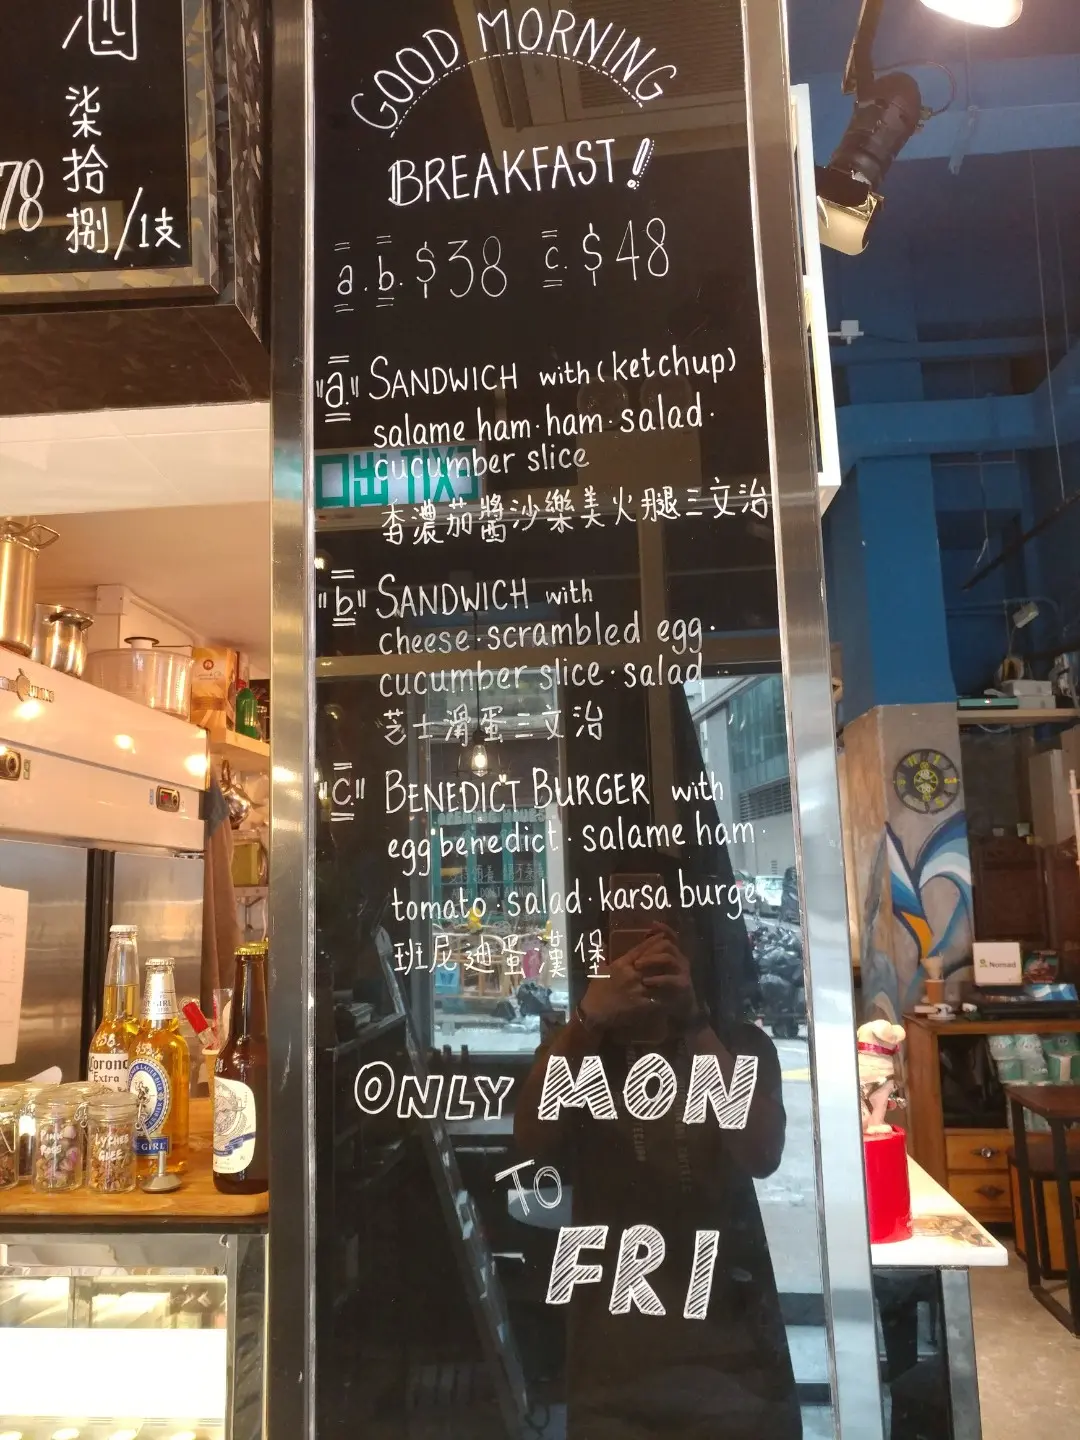 心
柒
拾
78
捌/1支
GOOD MORNING
BREAKFAST!
a. b. $38 c. $48
"a" SANDWICH with (ketchup)
salame ham·ham·salad·
cucumber slice
香濃茄醬沙樂美火腿三文治
"b" SANDWICH with
cheese·scrambled egg·
cucumber slice·salad
芝士滑蛋三文治
"c" BENEDICT BURGER with
egg benedict·salame ham·
tomato·salad·karsa burger
班尼迪蛋漢堡
ONLY MON
TO
FRI
出口 EXIT
Corona
Extra
GIRL
PINK
ROSE
LYCHEE
Nomad